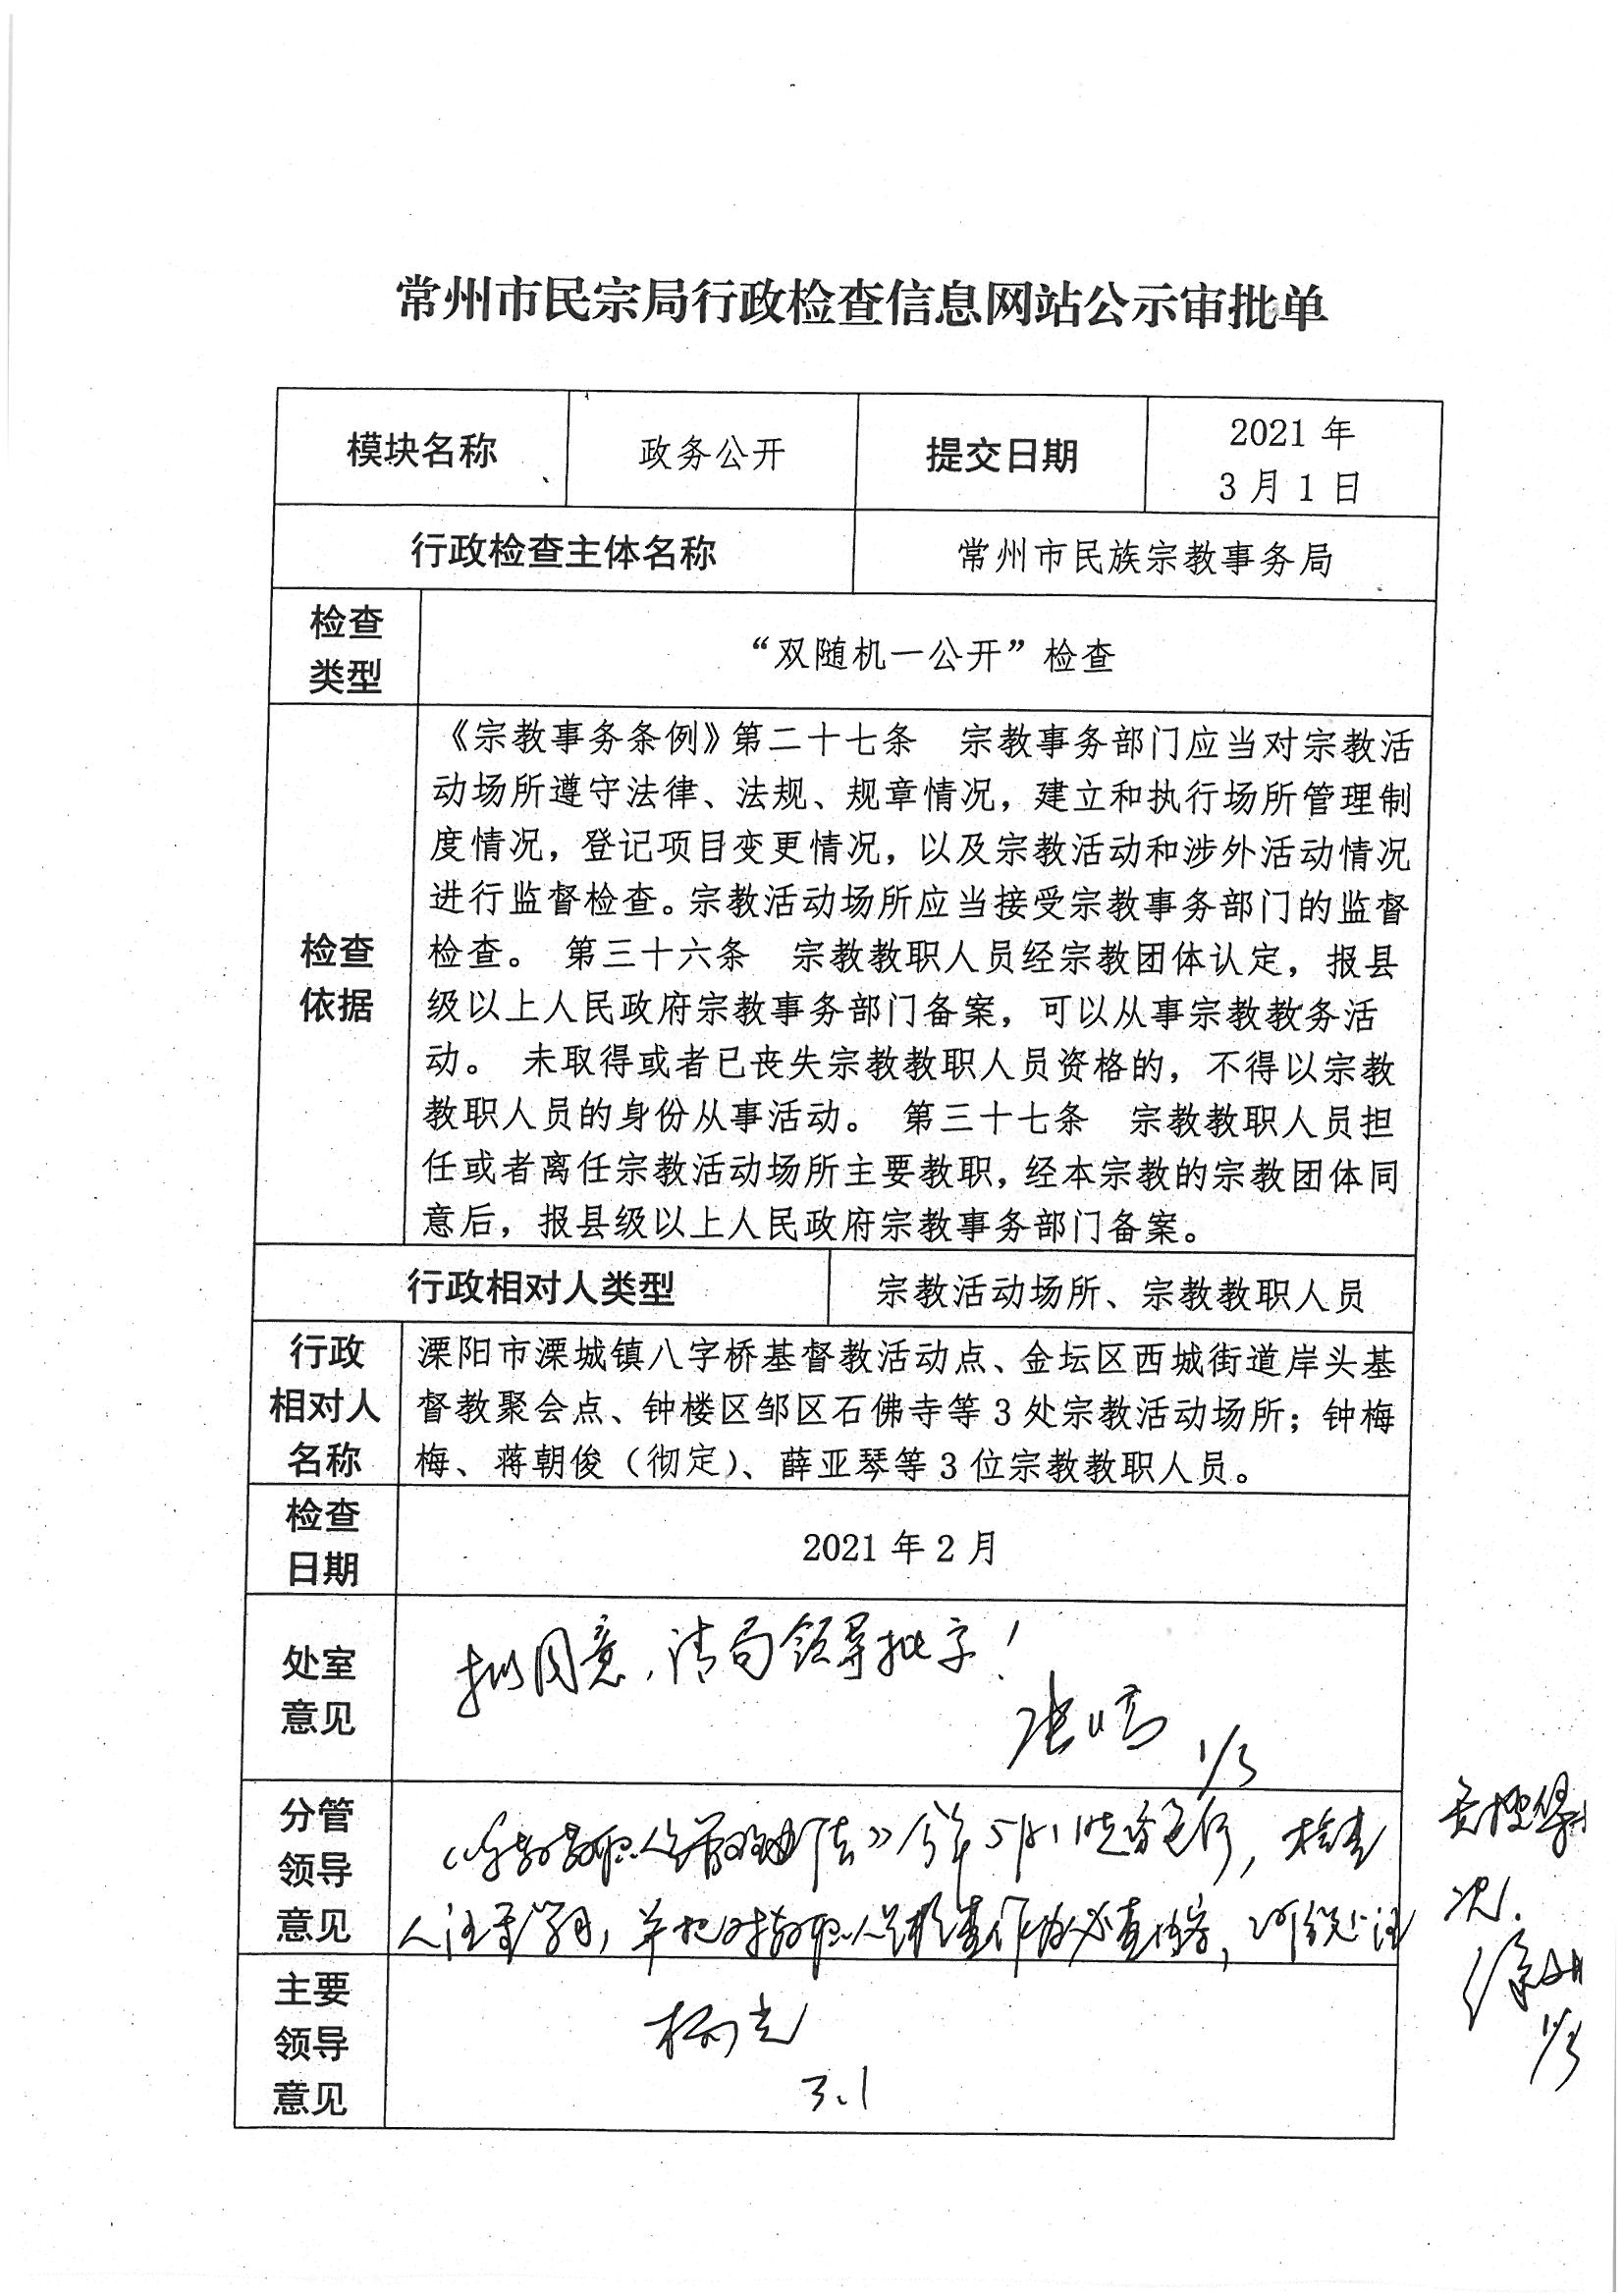 常州市民宗局行政检查信息网站公示审批单
模块名称 政务公开 提交日期 2021 年
3 月 1 日
行政检查主体名称 常州市民族宗教事务局
检查
类型
“双随机一公开”检查
检查
依据
《宗教事务条例》第二十七条 宗教事务部门应当对宗教活
动场所遵守法律、法规、规章情况，建立和执行场所管理制
度情况，登记项目变更情况，以及宗教活动和涉外活动情况
进行监督检查。宗教活动场所应当接受宗教事务部门的监督
检查。 第三十六条 宗教教职人员经宗教团体认定，报县
级以上人民政府宗教事务部门备案，可以从事宗教教务活
动。 未取得或者已丧失宗教教职人员资格的，不得以宗教
教职人员的身份从事活动。 第三十七条 宗教教职人员担
任或者离任宗教活动场所主要教职，经本宗教的宗教团体同
意后，报县级以上人民政府宗教事务部门备案。
行政相对人类型 宗教活动场所、宗教教职人员
行政
相对人
名称
溧阳市溧城镇八字桥基督教活动点、金坛区西城街道岸头基
督教聚会点、钟楼区邹区石佛寺等 3 处宗教活动场所；钟梅
梅、蒋朝俊（彻定）、薛亚琴等 3 位宗教教职人员。
检查
日期
2021 年 2 月
处室
意见
拟同意，请局领导批字！
1/3
分管
领导
意见
《宗教教职人员管理办法》今年5月1日起施行，检查
人 学习，并把对教职人员检查作为必查内容，
1/3
主要
领导
意见
3.1